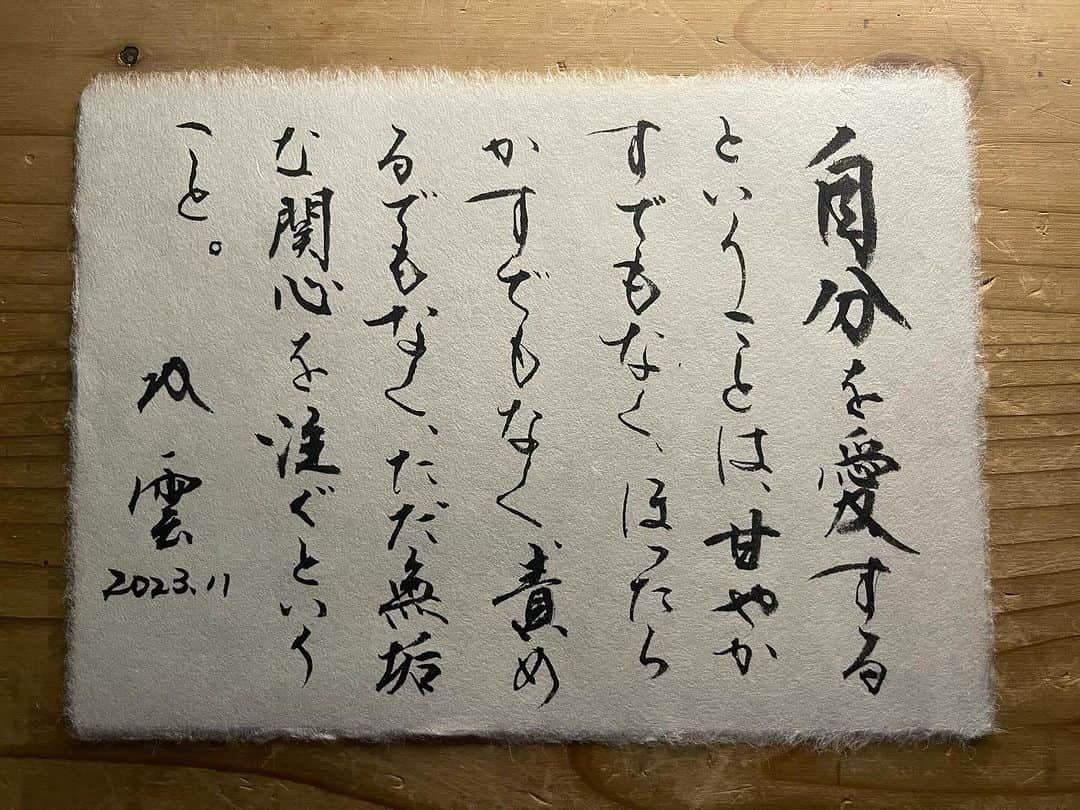 自分を愛する
ということは、甘やか
すでもなく、ほったら
かすでもなく、責め
るでもなく、ただ無垢
な関心を注ぐという
こと。
雲
2023.11